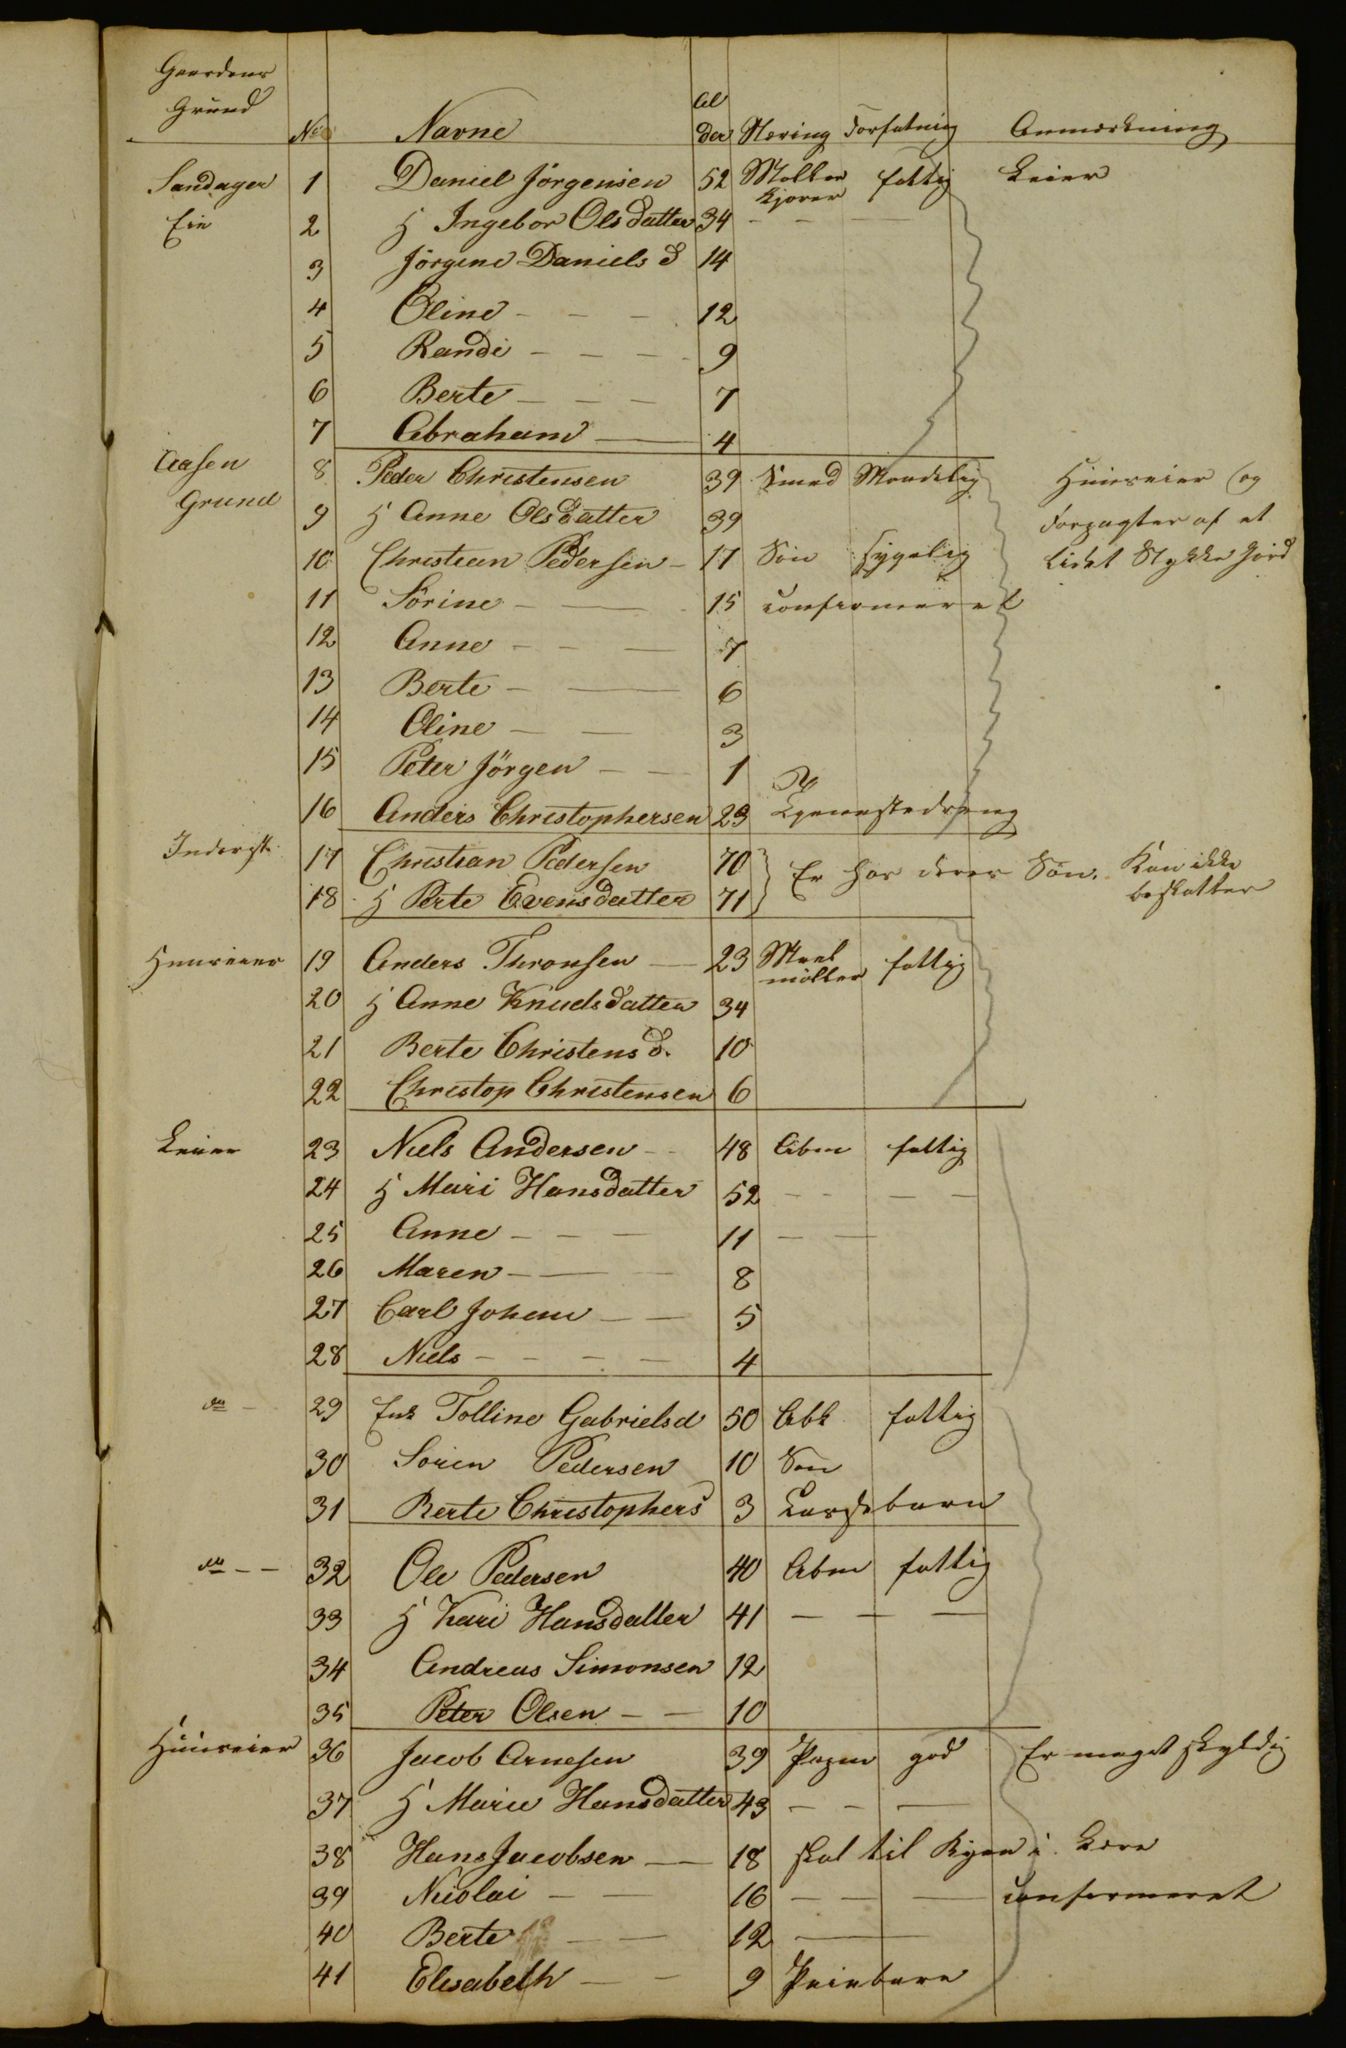 Gaardens
Grund
No Navne Al
der Næring Forfatning Anmærkning
Sandager 1 Daniel Jörgensen 52 Møller fattig Leier
kjører
Eie 2 H Ingebor Olsdatter 34 - - -
3 Jörgine Daniels d 14
4 Oline - - - 12
5 Randi - - - 9
6 Berte - - - 7
7 Abraham — 4
Aasen 8 Peder Christensen 39 Smed Maadelig Huuseier og
Grund 9 H Anne Olsdatter 39 Forpagter af et
10 Christian Pedersen - 17 Sön sygelig Lidet Stykke Jord
11 Sörine - — 15 confirmeret
12 Anne - - — 7
13 Berte - — 6
14 Oline - — 3
15 Peter Jörgen - — 1
16 Anders Christophersen 23 Tjenestedreng
Inderst 17 Christian Pedersen 70 } Er hos deres Sön. Kan ikke
18 H Berte Evensdatter 71 beskattes
Huuseier 19 Anders Thronsen — 23 Meel fattig
møller
20 H Anne Knudsdatter 34
21 Berte Christens d. 10
22 Christop Christensen 6
Leier 23 Niels Andersen - - 48 Abm fattig
24 H Mari Hansdatter 52 - - - —
25 Anne - - — 11 - —
26 Maren - — - 8
27 Carl Johan - — 5
28 Niels - - - — 4
do - 29 Enk Tolline Gabrielsd 50 Abk fattig
30 Sören Pedersen 10 Sön
31 Berte Christophers 3 barn
do - - 32 Ole Pedersen 40 Abm fattig
33 H Kari Hansdatter 41 — - —
34 Andreas Simonsen 12
35 Peter Olsen - — 10
Huuseier 36 Jacob Arnesen 39 god Er meget skyldig
37 H Marie Hansdatter 43 - - —
38 Hans Jacobsen — 18 skal til Byen i Lære
39 Nicolai - — 16 - - — confirmeret
40 Berte - — 12 - —
41 Elisabeth - - 9